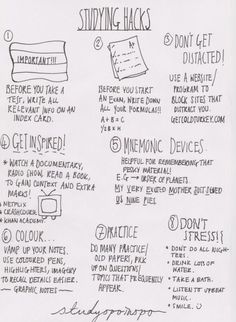 STUDYING HACKS
①
IMPORTANT!!!
BEFORE YOU TAKE A
TEST, WRITE ALL
RELEVANT INFO ON AN
INDEX CARD.
②
BEFORE YOU START
AN EXAM, WRITE DOWN
ALL YOUR FORMULAS!!
A+B=C
½B×H
③ DON'T GET
DISTACTED!
USE A WEBSITE/
PROGRAM TO
BLOCK SITES THAT
DISTRACT YOU.
GETCOLDTURKEY.COM
④ GET INSPIRED!
* WATCH A DOCUMENTARY,
RADIO SHOW, READ A BOOK,
TO GAIN CONTEXT AND EXTRA
MARKS!
NETFLIX
CRASHCOURSE
KHAN ACADEMY
⑤ MNEMONIC DEVICES
HELPFUL FOR REMEMBERING THAT
PESKY MATERIAL!
E.G → ORDER OF PLANETS.
MY VERY EXCITED MOTHER JUST SERVED
US NINE PIES
⑥ COLOUR...
VAMP UP YOUR NOTES,
USE COLOURED PENS,
HIGHLIGHTERS, IMAGERY
TO RECALL DETAILS EASIER.
GRAPHIC NOTES
⑦ PRACTICE
DO MANY PRACTICE/
OLD PAPERS, PICK
UP ON QUESTIONS/
TOPICS THAT FREQUENTLY
APPEAR.
⑧ DON'T
STRESS!
* DON'T DO ALL NIGH-
TERS.
* DRINK LOTS OF
WATER.
* TAKE A BATH.
* LISTEN TO UPBEAT
MUSIC.
* SMILE. ☺
studyopomopo